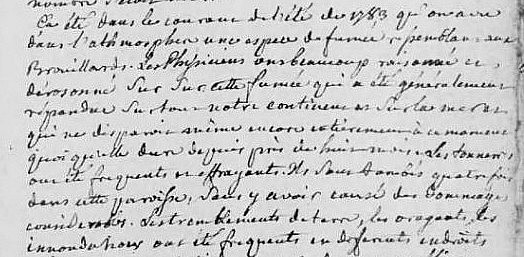 Ça été dans le courant de l'été de 1783 qu'on a vu
dans l'athmosphere une espece de fumée ressemblant aux
Brouillards. Les Physiciens ont beaucoup raisonné et
déresonné sur sur cette fumée qui a été généralement
répandue sur tout notre continent et sur la mer et
qui ne disparoit même encore entierement à ce moment
quoi qu'elle dure depuis près de huit mois. Les tonnerres
ont été frequents et effrayants. Ils sont tombés quatre fois
dans cette paroisse, sans y avoir causé des dommages
considerables. Les tremblements de terre, les oragants, les
innondations ont été frequents en differents endroits